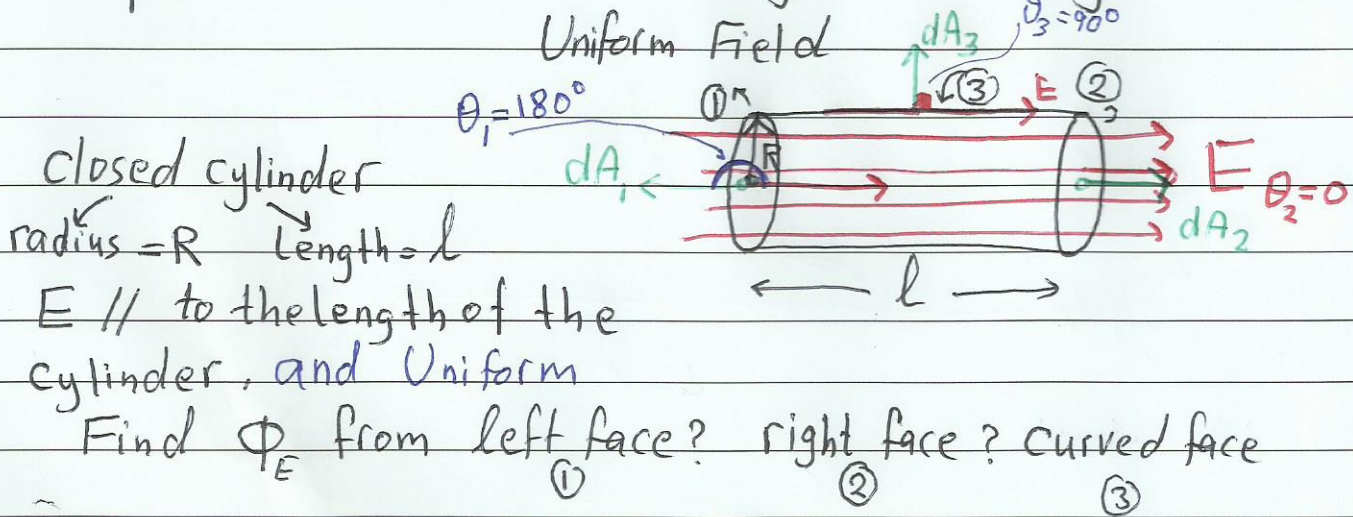 Uniform Field
dA₃
θ₃=90°
①
③
E
②
θ₁=180°
R
closed cylinder
dA₁
E
θ₂=0
radius = R length = l
dA₂
l
E // to the length of the
cylinder, and Uniform
Find Φ_E from left face? right face? curved face
① ② ③